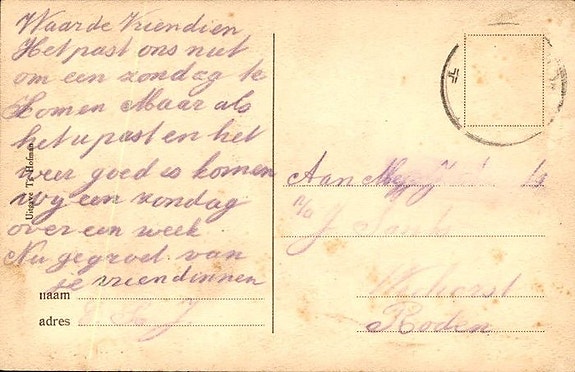 Waarde Vriendien
Het past ons niet
om een zondag te
komen Maar als
het u past en het
weer goed is komen
wy een zondag
over een week
Nu gegroet van
je vriendinnen
naam
adres
Uitgave Tj. Hofman
Aan Mej
p/a J
Roden